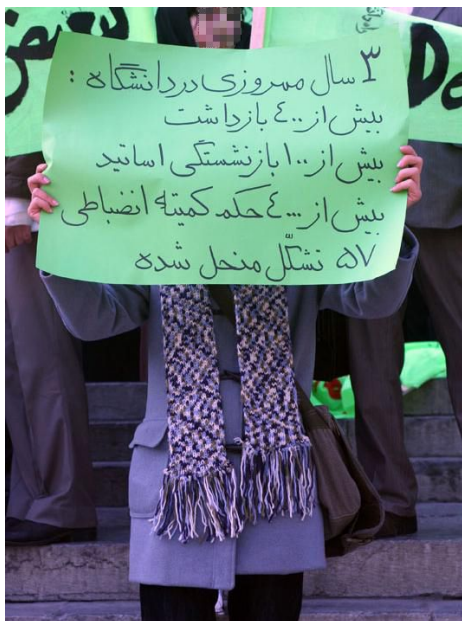 ۳ سال مهروزی در دانشگاه :
بیش از ٤۰۰ بازداشت
بیش از ۱۰۰ بازنشستگی اساتید
بیش از ٤۰۰۰ حکم کمیته انضباطی
۵۷ تشکّل منحل شده